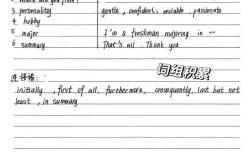 3 personality gentle, confident, passionate
4 hobby
5 major I'm a freshman majoring in ~~
6 summary That's all. Thank you
词组积累
连接词:
initially, first of all, furthermore, consequently, last but not
least, in summary